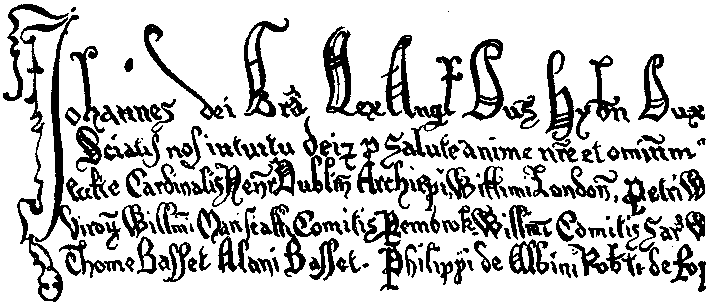 Johannes dei Grā Rex Angl Dns Hybn Dux
Sciatis nos intuitu dei & p salute anime nrē et omnium
eccłie Cardinalis Henr Dublin Archiepi, Willmi London, Petri W
viroȝ Willmi Marscalli Comitis Pembrok Willmi Comitis Sar W
Thome Basset Alani Basset. Philippi de Albini Robti de Rop